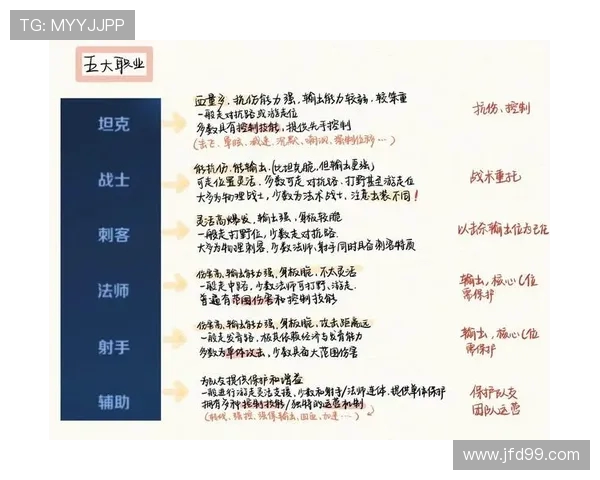 TG: MYYJJPP
五大职业
坦克
血量多,抗伤能力强,输出能力较弱,较笨重
一般走对抗路或游走位
多数具有控制技能,提供先手控制
(击飞、晕眩、减速、沉默、嘲讽、强制位移…)
抗伤、控制
战士
能抗伤,能输出,(比坦克脆,但输出更强)
可走位置灵活,多数可走对抗路、打野甚至游走位
大多为物理战士,少数为法术战士,注意出装不同!
战术重托
刺客
灵活高爆发,输出强,身板较脆
一般走打野位,少数走对抗路.
大多为物理刺客,少数法师,射手同时具备刺客特质
以击杀输出位为己任
法师
伤害高,输出能力强,身板脆,不太灵活
一般走中路,少数法师可打野、游走.
普遍有范围伤害和控制技能
输出,核心C位
需保护
射手
伤害高,输出能力强,身板脆,攻击距离远
一般走发育路,极其依赖经济与发育能力
多数为单体攻击,少数具备大范围伤害
输出,核心C位
需保护
辅助
为队友提供保护和增益
一般进行游走灵活支援,少数和射手/法师连体,提供单体保护
拥有多种控制技能/独特的运营机制
保护队友
团队运营
www.jfd99.com